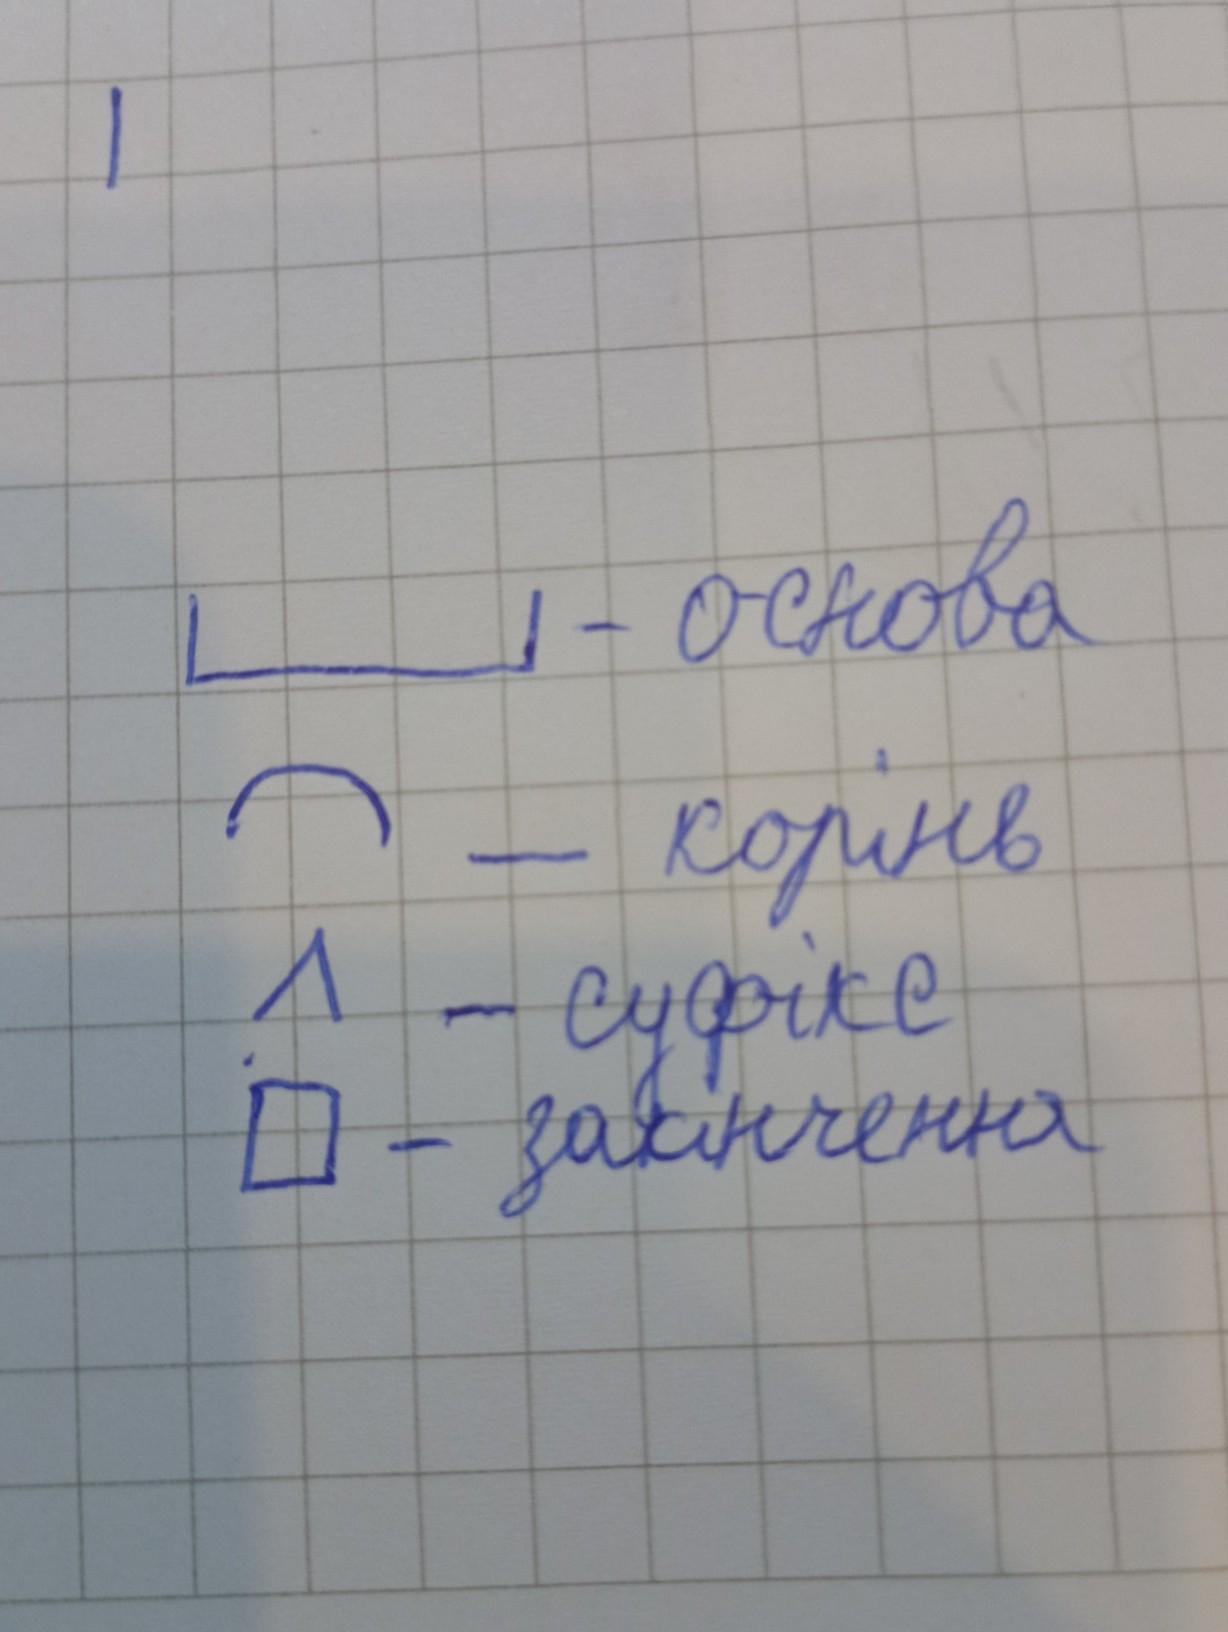 – основа
— корінь
– суфікс
– закінчення